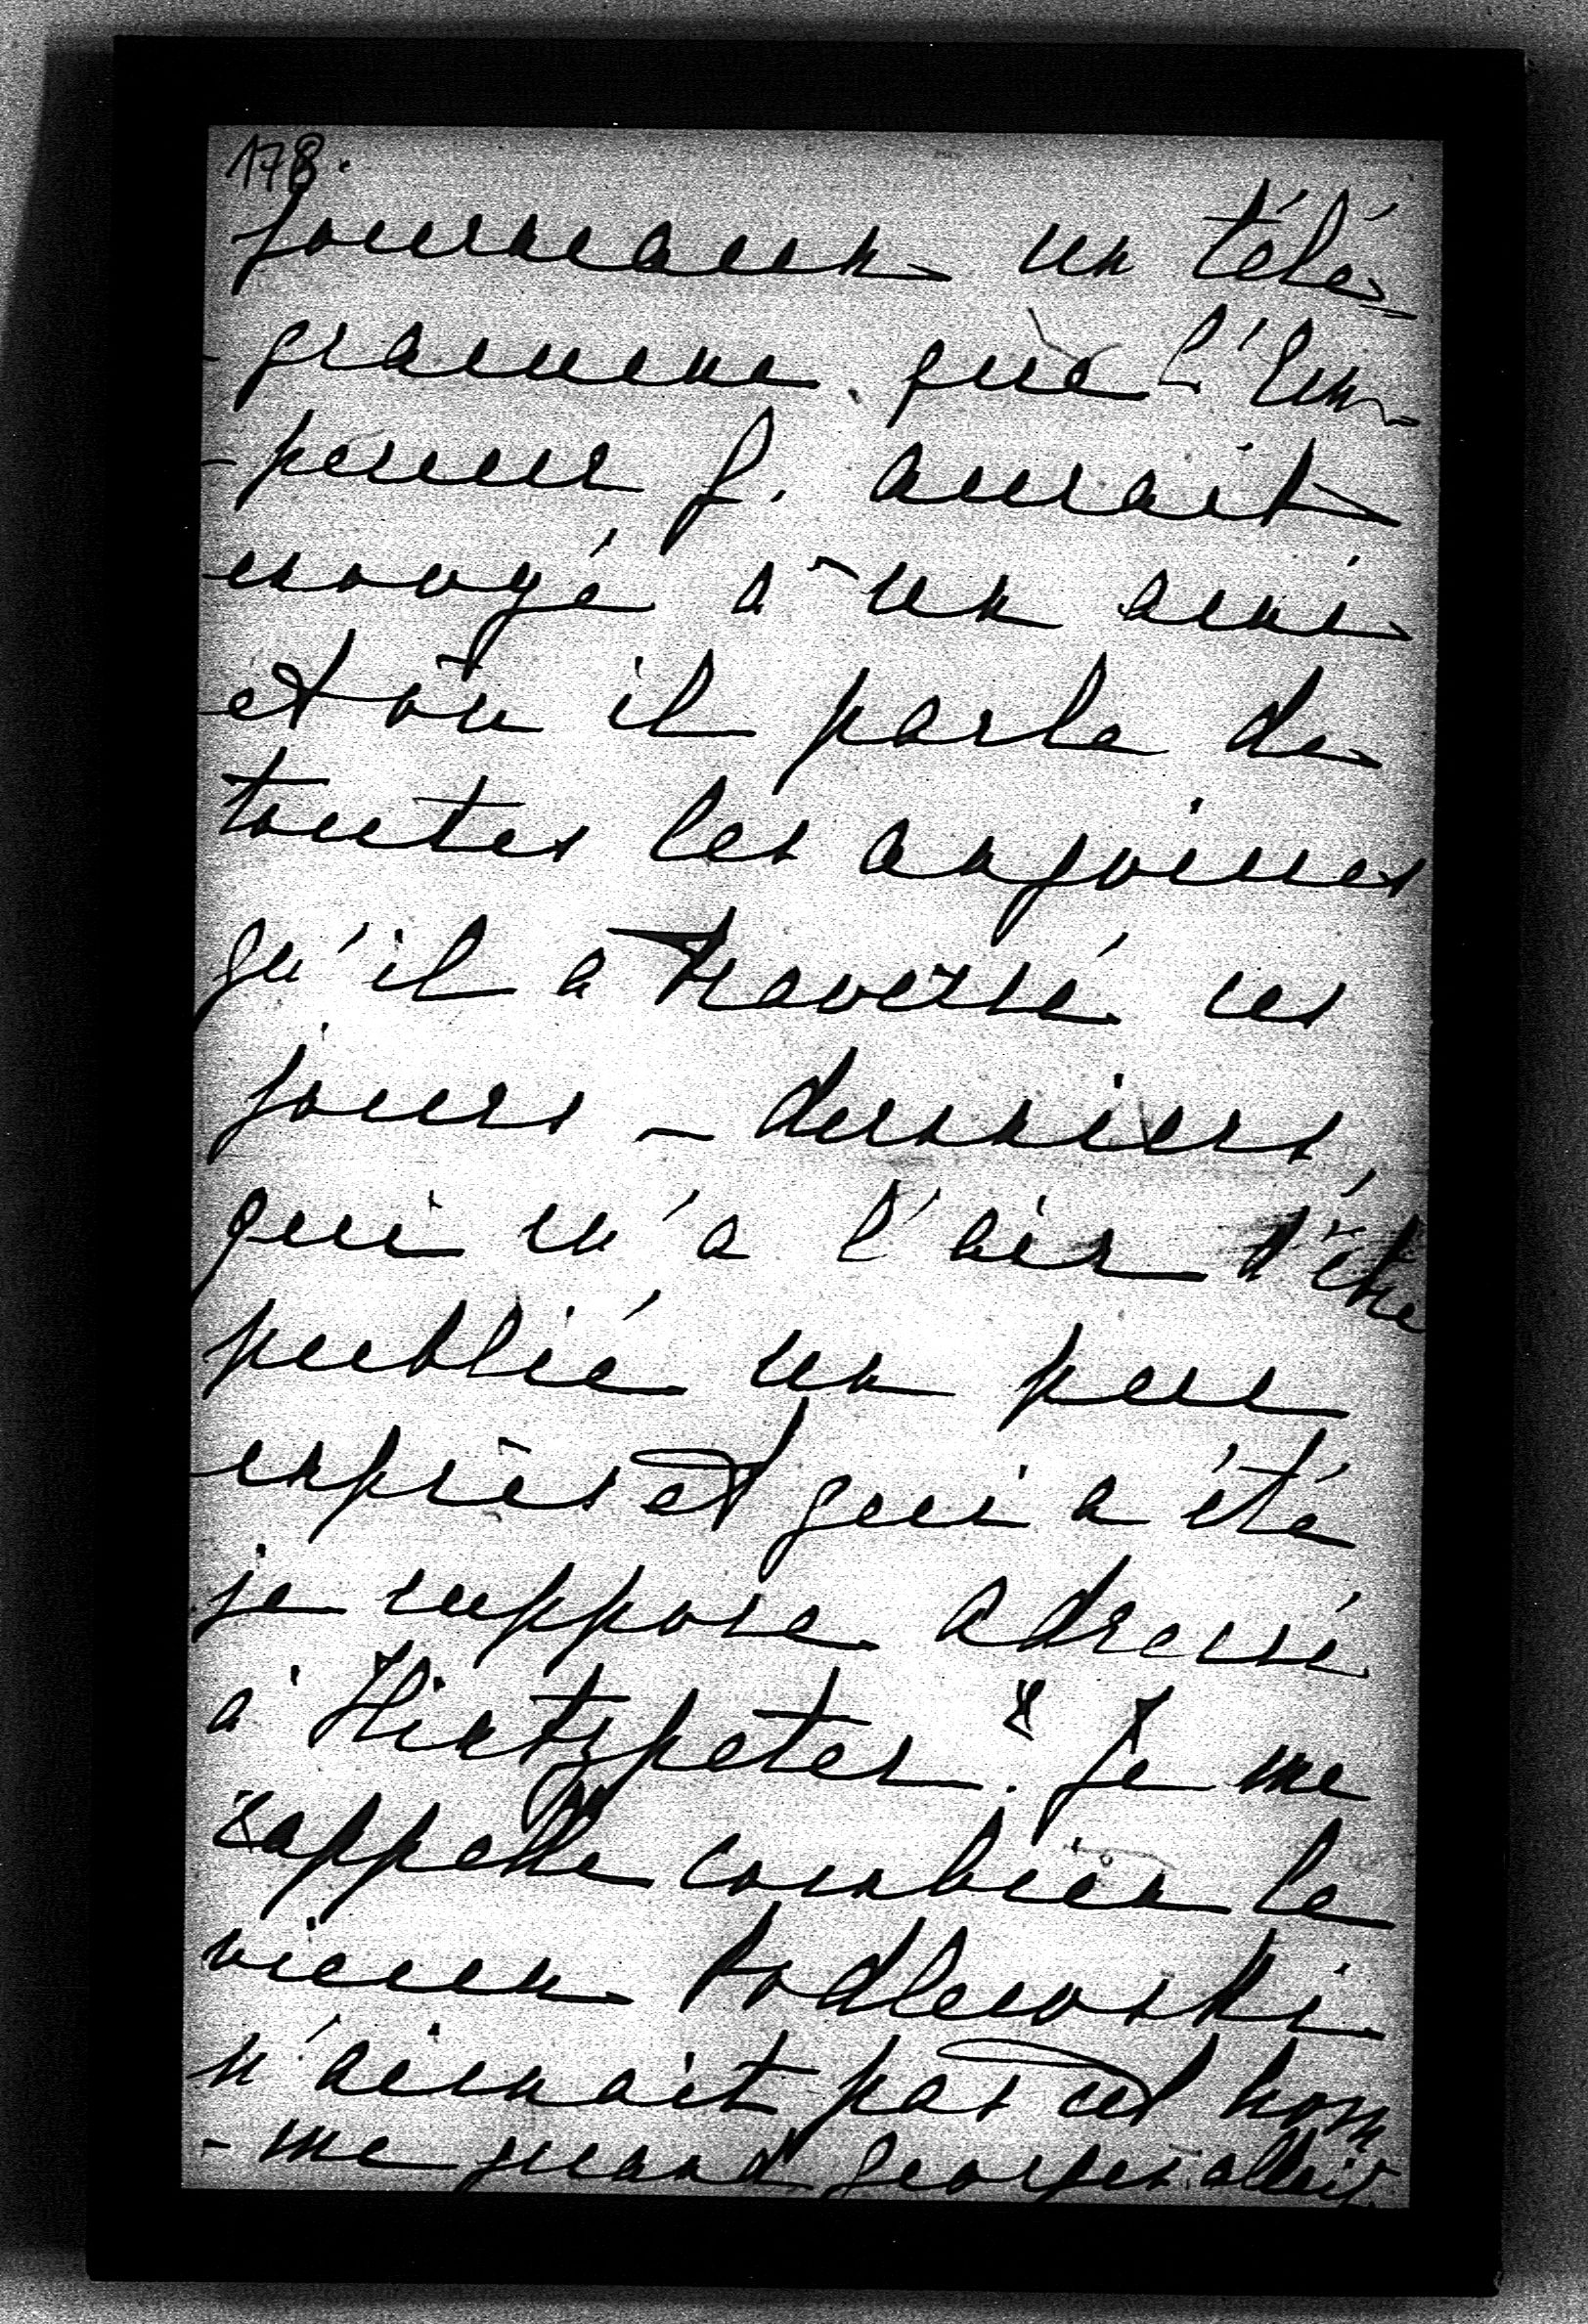 178.
journeaux un télé-
-gramme que l'Em-
-pereur G. aurait
envoyé à un ami
et où il parle de
toutes les angoisses
qu'il a traversé ces
jours – derniers,
qui m'a l'air d'être
publié un peu
exprès et qui a été
je suppose adressé
à Hintzpeter. Je me
rappelle combien le
vieux Podlewski
n'aimait pas cet hom
-me quand Georges allait